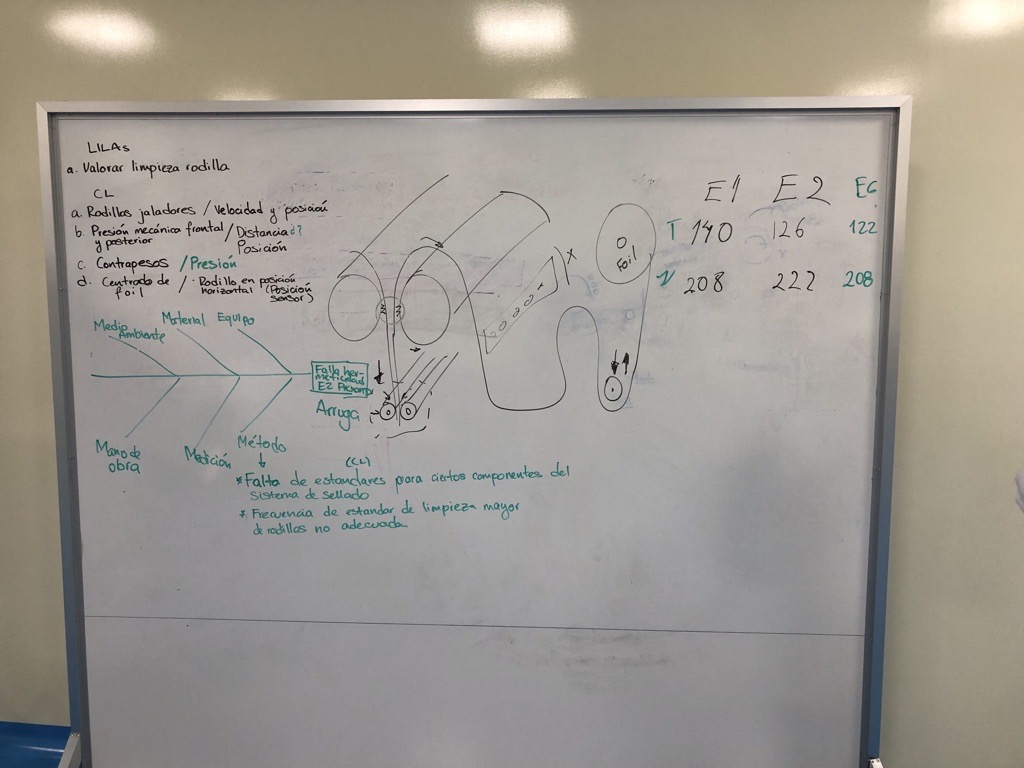 LILAs
a. Valorar limpieza rodilla
CL
a. Rodillos jaladores / Velocidad y posición
b. Presión mecánica frontal / Distancia d?
y posterior Posición
c. Contrapesos / Presión
d. Centrado de / Rodillo en posición
foil horizontal (Posición
sensor)
Medio Ambiente
Material
Equipo
Falla her-
meticidad
E2
Arruga
Mano de
obra
Medición
Método
(CL)
* Falta de estandares para ciertos componentes del
Sistema de sellado
* Frecuencia de estandar de limpieza mayor
de rodillos no adecuada
x
Foil
E1 E2 E6
T 140 126 122
V 208 222 208